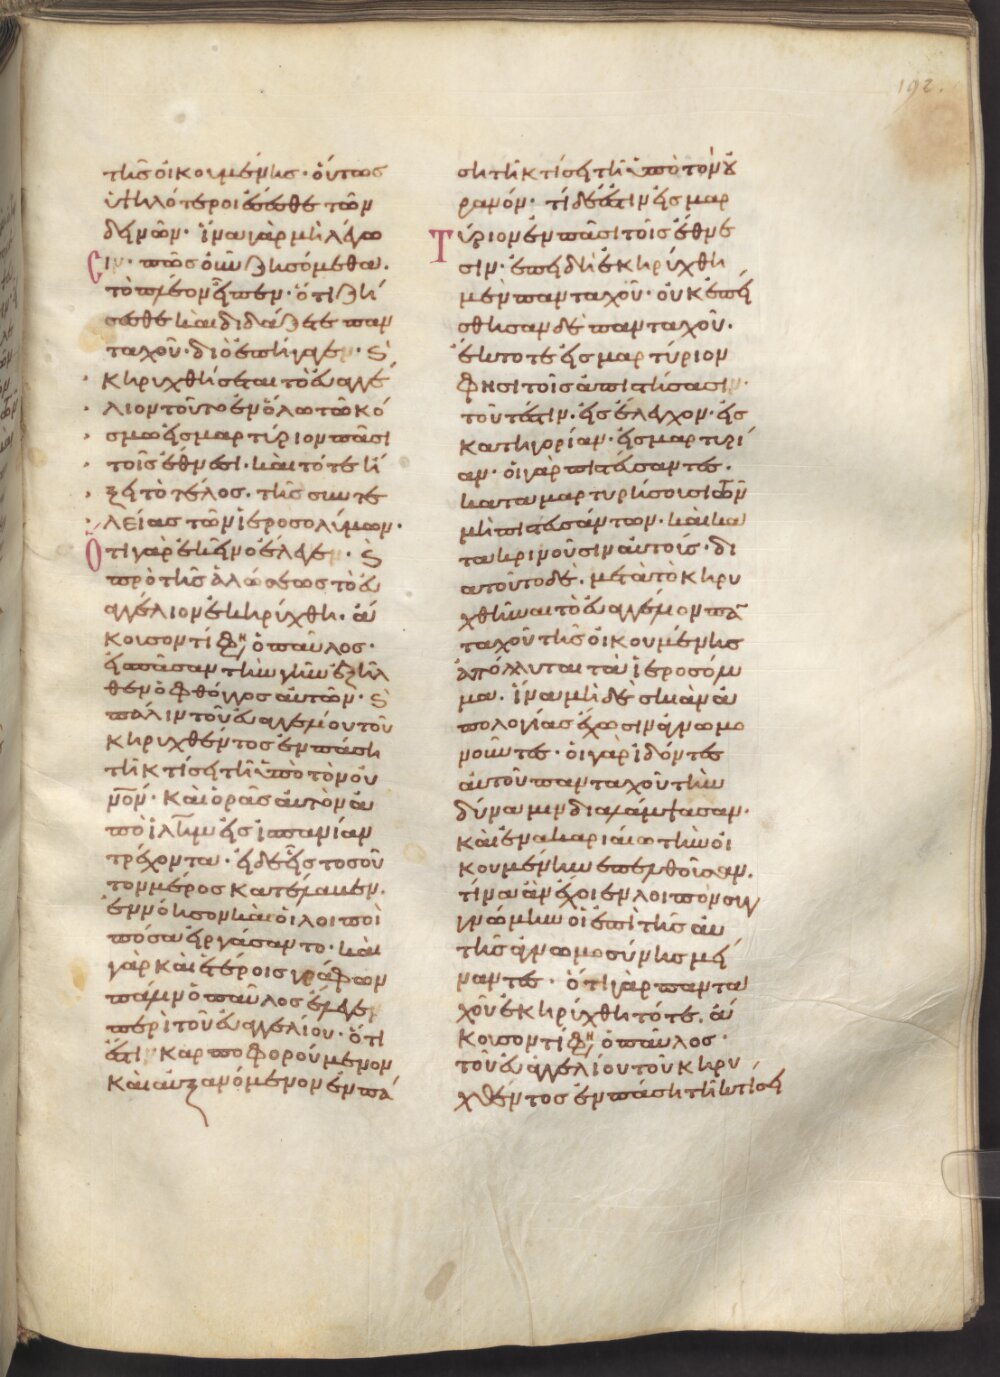 192.
τῆς οἰκουμένης· οὕτως
ὑψηλότεροι ἔσεσθε τῶν
δεινῶν· ἵνα γὰρ μὴ λέγω
σιν· πῶς οὖν ζησόμεθα.
τὸ πλέον εἶπεν· ὅτι ζή
σεσθε καὶ διδάξετε παν
ταχοῦ· διὸ ἐπήγαγεν· ϛ
κηρυχθήσεται τὸ εὐαγγέ
λιον τοῦτο ἐν ὅλω τῶ κό
σμω εἰς μαρτύριον πᾶσι
τοῖς ἔθνεσι· καὶ τότε ἥ
ξει τὸ τέλος. τῆς συντε
λείας τῶν ἱεροσολύμων·
Ὅτι γὰρ ἐκεῖνο ἔλεγεν· ϛ
πρὸ τῆς ἁλώσεως τὸ εὐ
αγγέλιον ἐκηρύχθη· ἄ
κουσον τί φη, ὁ παῦλος·
εἰς πᾶσαν τὴν γῆν ἐξῆλ
θεν ὁ φθόγγος αὐτῶν· ϛ
πάλιν τοῦ εὐαγγελίου τοῦ
κηρυχθέντος ἐν πάση
τῆ κτίσει τῆ ὑπὸ τὸν οὐ
νον· Καὶ ὁρᾶς αὐτὸν ἀ
πὸ ἰλημ εἰς ἱσπανίαν
τρέχοντα· εἰ δὲ εἷς τοσοῦ
τον μέρος κατέλαβεν.
ἐννόησον καὶ οἱ λοιποὶ
πόσα εἰργάσαντο· καὶ
γὰρ καὶ ἑτέροις γράφων
πάλιν ὁ παῦλος ἔλεγε
περὶ τοῦ εὐαγγελίου· ὅτι
ἐστὶ καρποφορούμενον
καὶ αὐξανόμενον ἐν πά
ση τῆ κτίσει τῆ ὑπὸ τὸν οὐ
ρανόν· τί δέ ἐστιν εἰς μαρ
τύριον ἐν πᾶσι τοῖς ἔθνε
σιν· ἐπειδὴ ἐκηρύχθη
μὲν πανταχοῦ· οὐκ ἐπεί
σθησαν δὲ πανταχοῦ.
ἔστω τότε εἰς μαρτύριον
φησι τοῖς ἀπιστήσασιν·
τοῦτέστιν· εἰς ἔλεγχον· εἰς
κατηγορίαν· εἰς μαρτυρί
αν· οἱ γὰρ πιστεύσαντες.
καταμαρτυρήσουσι τῶν
μὴ πιστευσάντων· καὶ κα
τακρινοῦσιν αὐτούς· δι
ατοῦτο δὲ. μετὰ τὸ κηρυ
χθῆναι τὸ εὐαγγέλιον πα
ταχοῦ τῆς οἰκουμένης
ἀπόλλυται τὰ ἱεροσόλυ
μα. ἵνα μηδὲ σκιὰν ἀ
πολογίας ἔχωσιν ἀγνωμο
νοῦντες· οἱ γὰρ ἰδόντες
αὐτοῦ πανταχοῦ τὴν
δύναμιν διαλάμψασαν.
καὶ ἐν ἀκαριαίω τὴν οἰ
κουμένην ἐπελθοῦσαν.
τίνα ἂν ἔχοιεν λοιπὸν συγ
γνώμην οἱ ἐπὶ τῆς αὐ
τῆς ἀγνωμοσύνης μεί
ναντες· ὅτι γὰρ παντα
χοῦ ἐκηρύχθη τότε. ἄ
κουσον τί φη, ὁ παῦλος·
τοῦ εὐαγγελίου τοῦ κηρυ
χθέντος ἐν πάση τῆ κτίσει